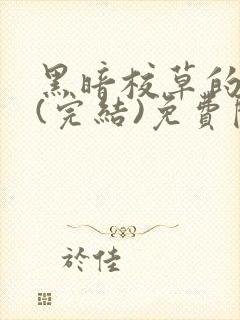 黑暗校草的
(完結)免費
於佳